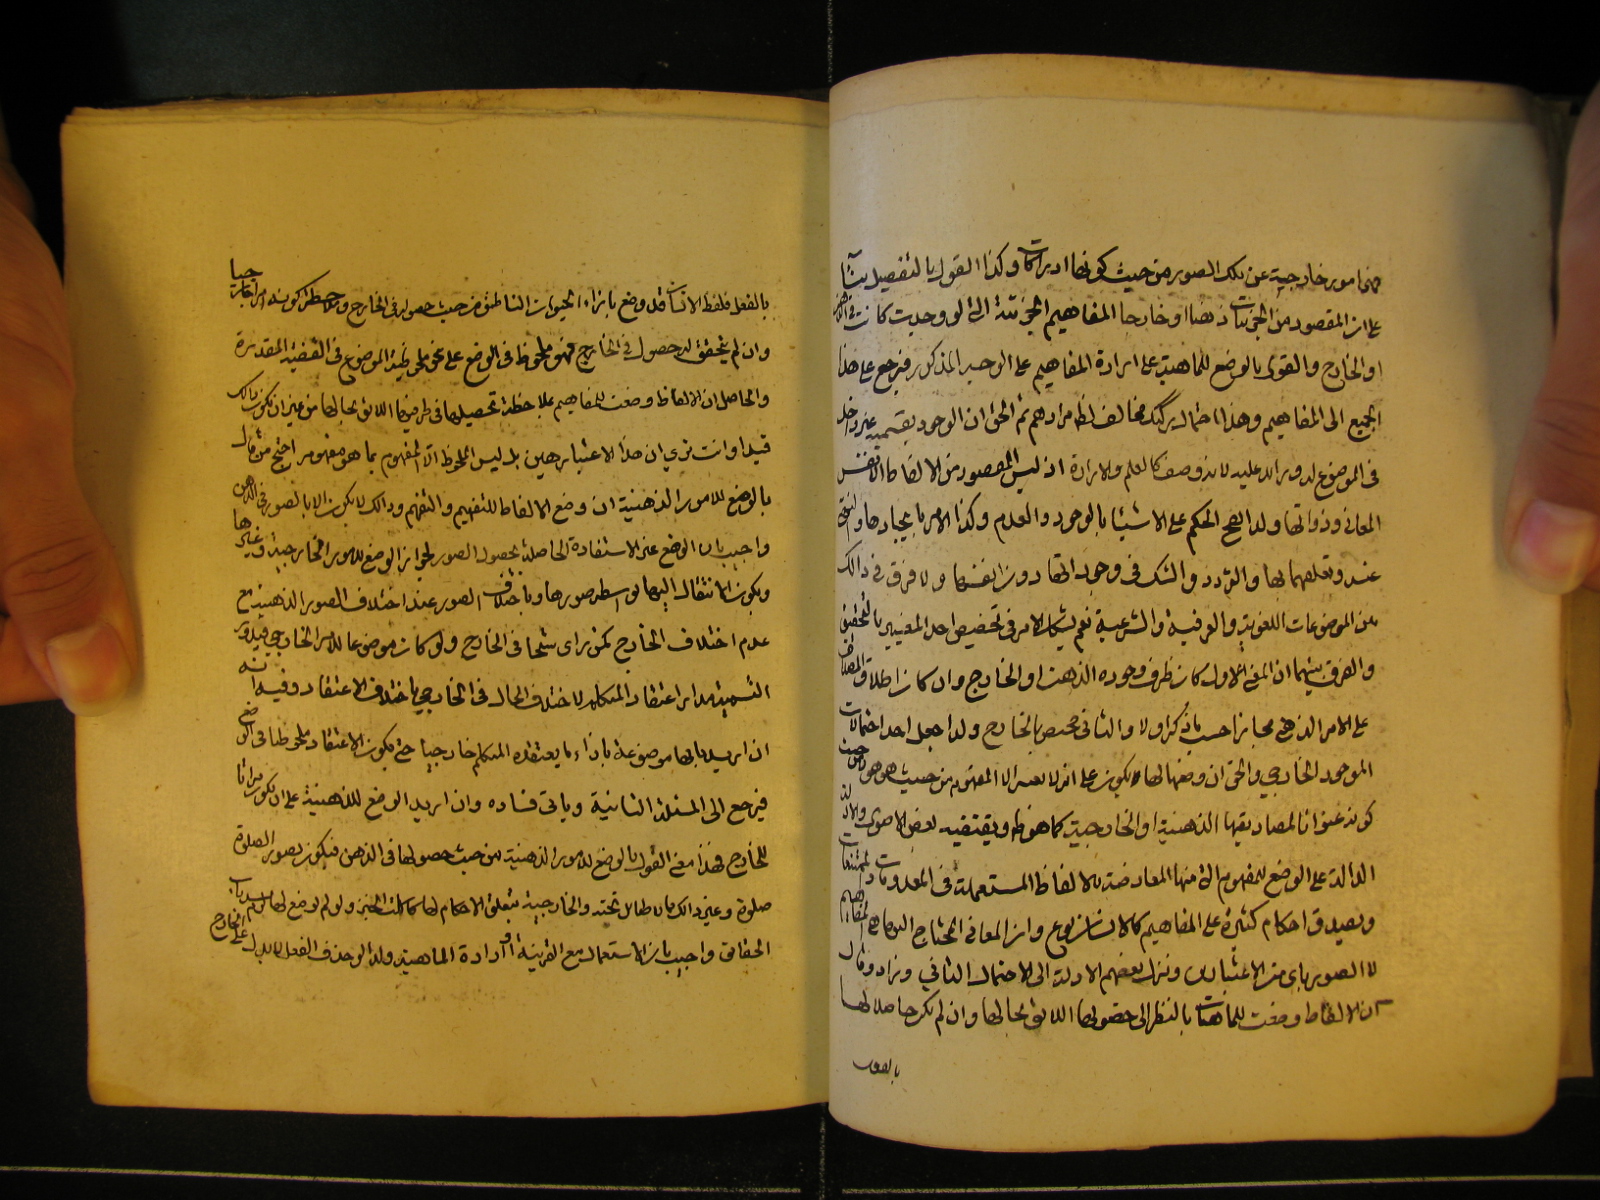 هنا امور خارجية عن تلك الصور من حيث كونها ادراكات وكذا القول بالتفصيل بناء
على ان المقصود من الجزئيات ذهنا او خارجا المفاهيم الجزئية التي لو وجدت كانت في الذهن
او الخارج والقول بالوضع للماهية على ارادة المفاهيم على الوجه المذكور فيرجع على هذا
الجميع الى المفاهيم وهذا احتمال ركيك مخالف لظ مرادهم ثم الحق ان الوجود بقسميه غير داخل
في الموضوع له وبرائد عليه لا بذ وصف كالعلم والارادة اذ ليس المقصود من الالفاظ الا نفس
المعاني وذواتها ولذا يصح الحكم على الاشيا بالوجود والعدم وكذا الامر بايجادها والنهي
عنه وتعلقهما بها والتردد والشك في وجوداتها دون انفسها ولا فرق في ذالك
بين الموضوعات اللغوية والعرفية والشرعية نعم يشكل الامر في تخصيص احد المعنيين بالتحقيق
والفرق بينهما ان المعنى الاول كان ظرف وجوده الذهن او الخارج وان كان اطلاق
على الامر الذهني مجازا حسب ما ذكر اولا والثاني مختص بالخارج ولذا جعل احد احتمالات
الموجود الخارجي والحق ان وضعها لها لا يكون على انه لا يعتبر الا المفهوم من حيث هو هو لا من حيث
كونه عنوانا لمصاديقها الذهنية او الخارجية كما هو ظ ويقتضيه بعض الاصول والادلة
الدالة على الوضع للمفهوم التي منها المعارضة بالالفاظ المستعملة في المعدومات والممتنعات
وتصدق احكام كثيرة على المفاهيم كالانسان نوع وان المعاني المحتاج اليها هي المفاهيم
لا الصور باي من الاعتبارين ونزل بعضهم الادلة الى الاحتمال الثاني وزاد وقال
ان الالفاظ وضعت للماهيات بالنظر الى حصولها اللائق بحالها وان لم يكن حاصلا لها
بالفعل
بالفعل فلفظ الانسان قد وضع بازاء الحيوان الناطق من حيث حصوله في الخارج وملاحظة كونه امرا خارجيا
وان لم يتحقق له حصول في الخارج فهو ملحوظ في الوضع على نحو ملحوظية الموضوع في القضية المقدرة
والحاصل ان الالفاظ وضعت للمفاهيم بملاحظة تحصيلها في ظرفها اللائق بحالها من غير ان يكون ذالك
قيدا وانت ترى ان هذا الاعتبار هين بل ليس الملحوظ الا المفهوم بما هو مفهوم احتج من قال
بالوضع للامور الذهنية ان وضع الالفاظ للتفهيم والتفهم وذالك لا يكون الا بالصور في الذهن
واجيب بان الوضع غير الاستفادة الحاصلة بحصول الصور لجواز الوضع للامور الخارجية وغيرها
ويكون الانتقال اليها بواسطة صورها وباختلاف الصور عند اختلاف الصور الذهنية مع
عدم اختلاف الخارج كمن راى شبحا في الخارج ولو كان موضوعا للامر الخارجي فيدور
التسمية مدار اعتقاد المتكلم لاختلاف الحال في الخارجي باختلاف الاعتقاد وفيه انه
ان اريد بانها موضوعة بازاء ما يعتقده المتكلم خارجيا حتى يكون الاعتقاد ملحوظا في الوضع
فيرجع الى المسئلة الثانية وياتي فساده وان اريد الوضع للذهنية على ان يكون مراتا
للخارج فهذا معنى القول بالوضع للامور الذهنية من حيث حصولها في الذهن فيكون تصور الصلوة
صلوة وغير ذالك مما لا طائل تحته والخارجية بتعلق الاحكام لها كاكلت الخبز ولو لم يوضع لها
الحقائق واجيب بان الاستعمال مع القرينة او ارادة الماهية ولذا لو حذف الفعل لا يدل على الخارج